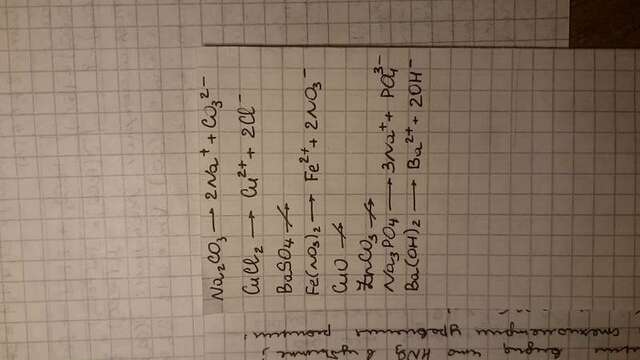 Na₂CO₃ → 2Na⁺ + CO₃²⁻
CuCl₂ → Cu²⁺ + 2Cl⁻
BaSO₄ ↛
Fe(NO₃)₂ → Fe²⁺ + 2NO₃⁻
CuO ↛
ZnCO₃ ↛
Na₃PO₄ → 3Na⁺ + PO₄³⁻
Ba(OH)₂ → Ba²⁺ + 2OH⁻